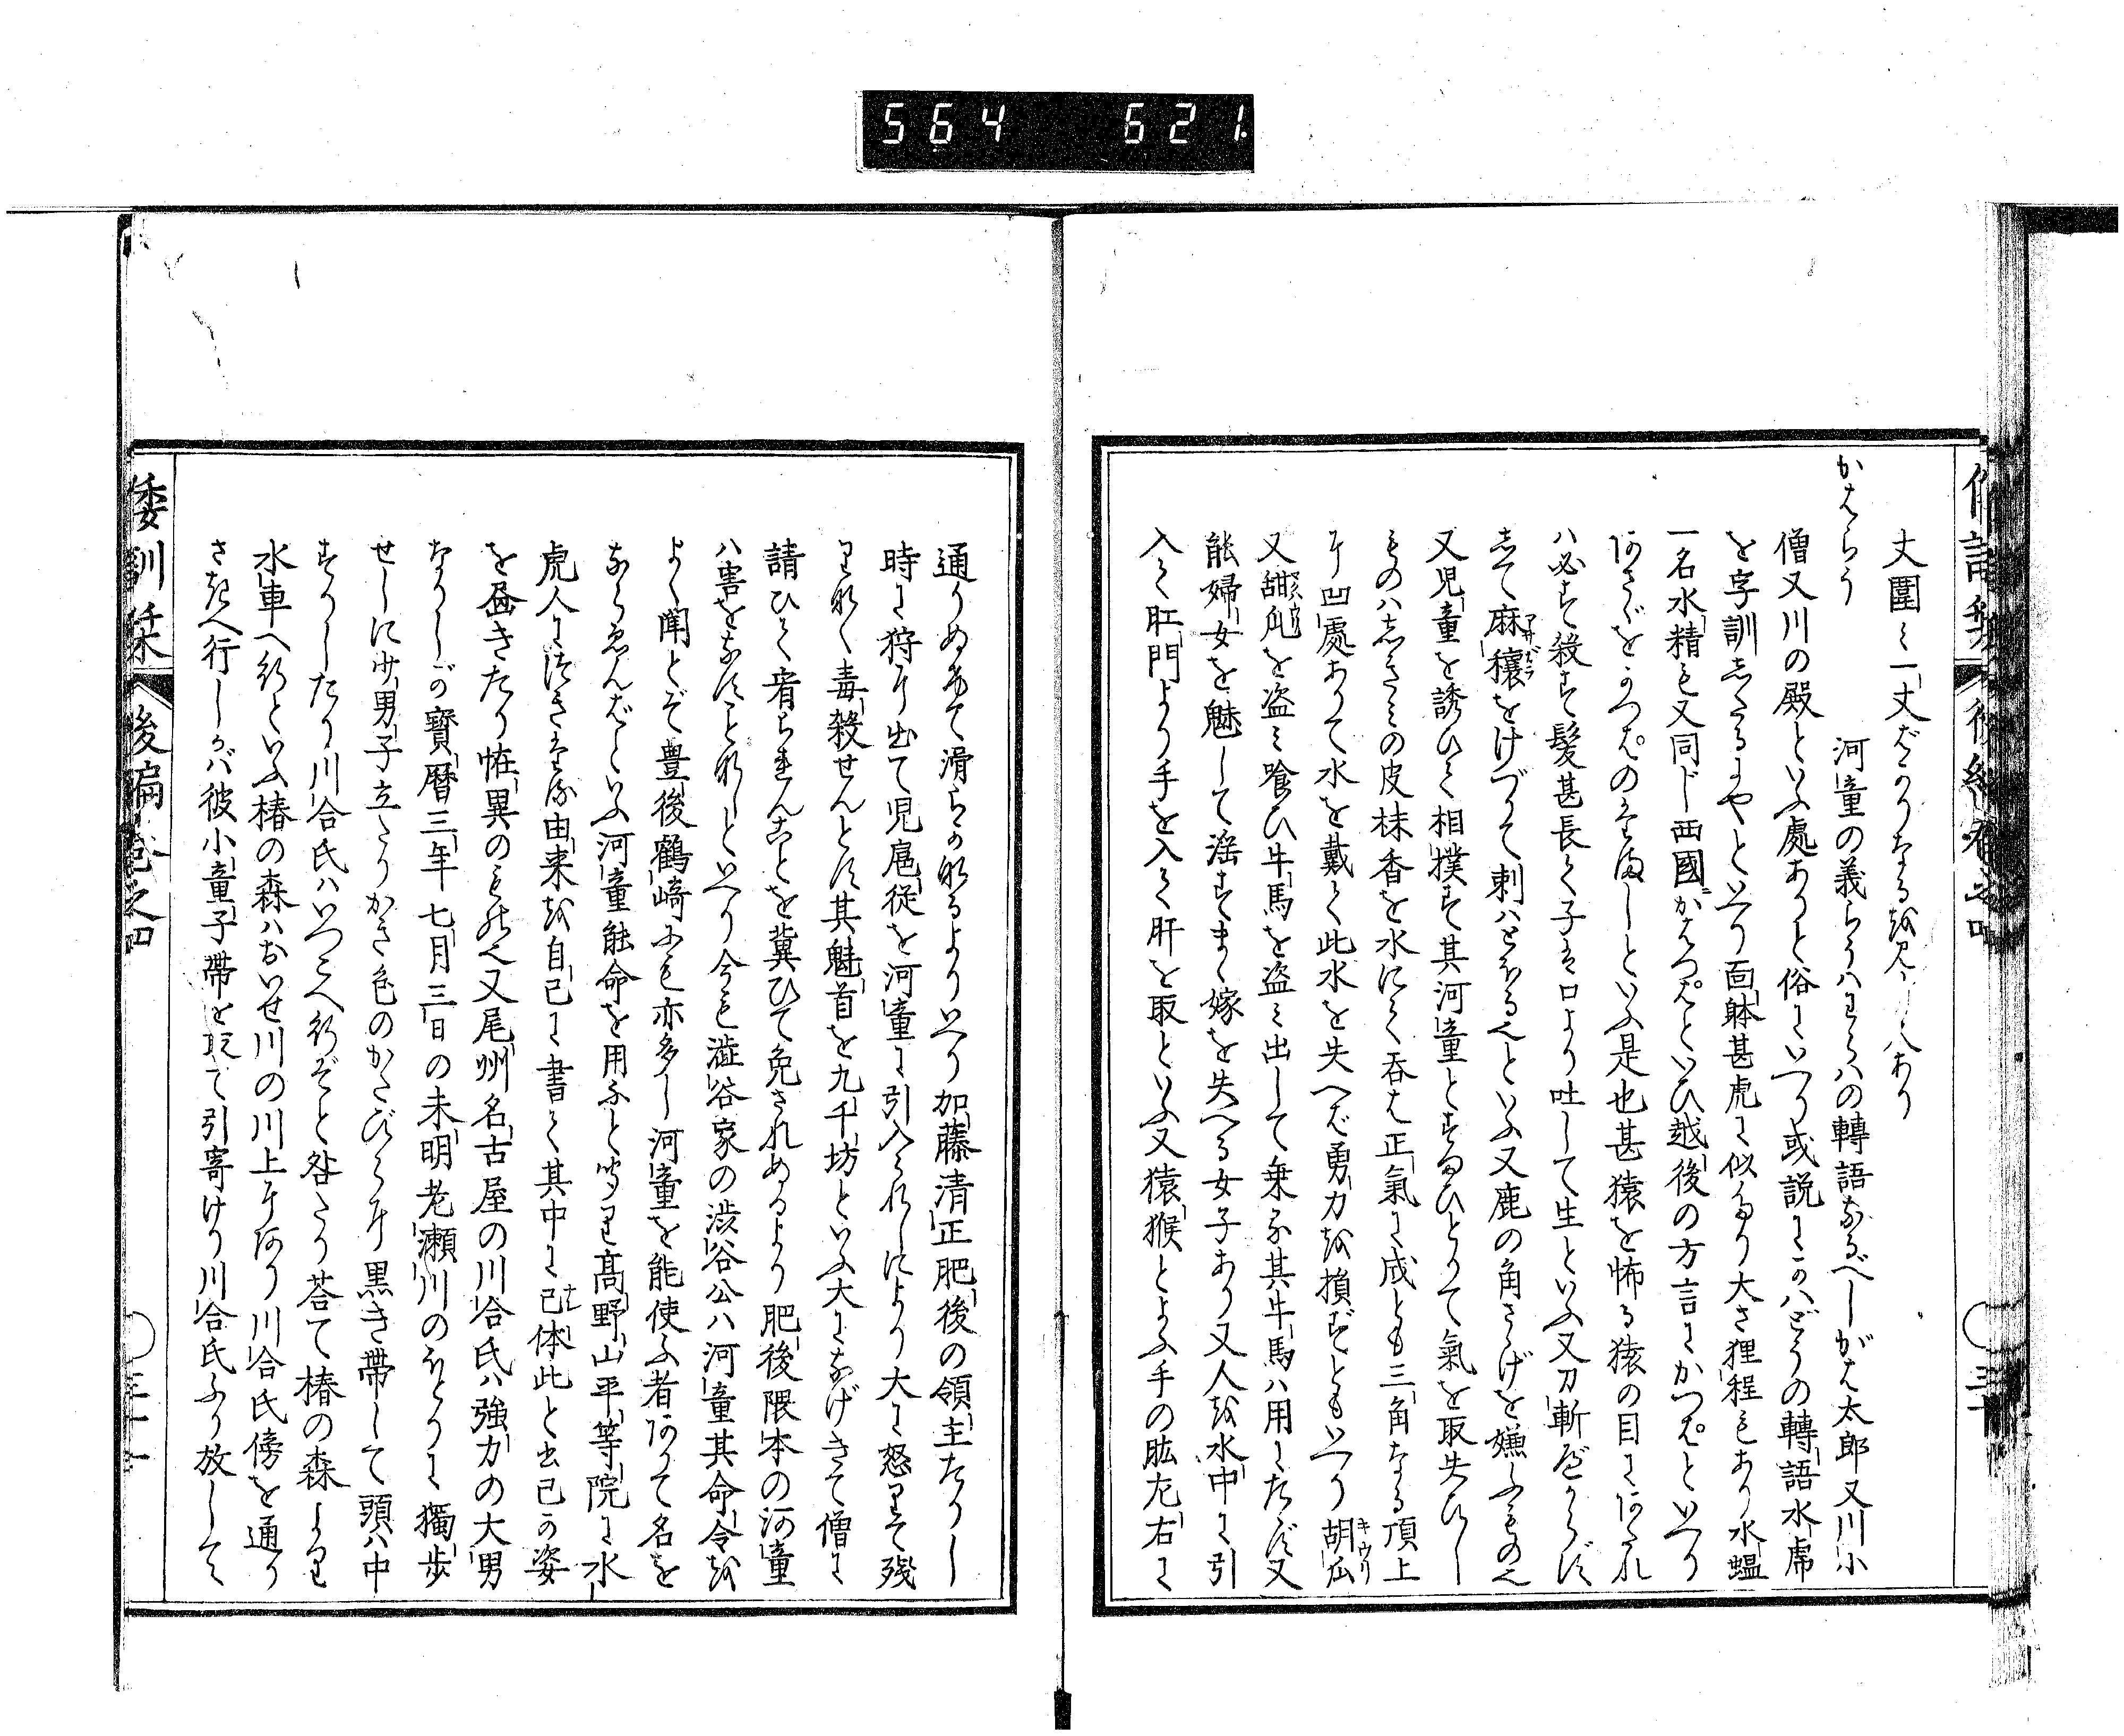 564 621
丈圍ミ一丈ばかりなるを見し人あり
かはらう 河童の義らうハわらハの轉語なるべしがは太郎又川小
僧又川の殿といふ處ありと俗にいへり或説にかハどうの轉語水虎
を字訓したるにやといへり面躰甚虎に似たり大さ狸程もあり水蝹
一名水精も又同じ西國にかはつぱといひ越後の方言にかつぱといへり
あさぎをかつぱのをぢしといふ是也甚猿を怖る猿の目にあたれ
ハ必す殺す髪甚長く子を口より吐して生といふ又刀斬べからず
して麻穰をけづりて刺ハとほる也といふ又鹿の角さゝげを嫌ふもの也
又児童を誘ひて相撲す其河童とすまひとりて氣を取失ひし
ものハしきみの皮抹香を水にて呑は正氣に成とも三角なる頂上
に凹處ありて水を戴く此水を失へば勇力を損ずともいへり胡瓜
又甜瓜を盗ミ喰ひ牛馬を盗ミ出して乗る其牛馬ハ用にたゝず又
能婦女を魅して淫すまゝ嫁を失へる女子あり又人を水中に引
入て肛門より手を入て肝を取といふ又猿猴とよふ手の肱左右に
通りぬけて滑らかなるよりいへり加藤清正肥後の領主たりし
時に狩に出て児扈従を河童に引入られしにより大に怒りて殘
りなく毒殺せんとす其魁首を九千坊といふ大になげきて僧に
請ひて宥られんことを冀ひて免されぬるより肥後隈本の河童
ハ害をなすことなしといへり今も澁谷家の渋谷公ハ河童其命令を
よく聞とぞ豊後鶴崎にも亦多し河童を能使ふ者ありて名を
ならゑんばといふ河童能命を用ふと聞り高野山平等院に水し
虎人につきたる由来を自己に書て其中に己体此と出己の姿
を畫きたり恠異のもの也又尾州名古屋の川合氏ハ強力の大男
なりしが寳暦三年七月三日の未明老瀬川のほとりに獨歩
せしに少男子立たりかき色のかたびらに黒き帶して頭ハ中
すりしたり川合氏ハいつこへ行ぞと咎たり荅て椿の森より
水車へ行といふ椿の森ハおいせ川の川上にあり川合氏傍を通り
さきへ行しかバ彼小童子帶を取て引寄けり川合氏ふり放して
倭訓栞 後編卷之四 三十一